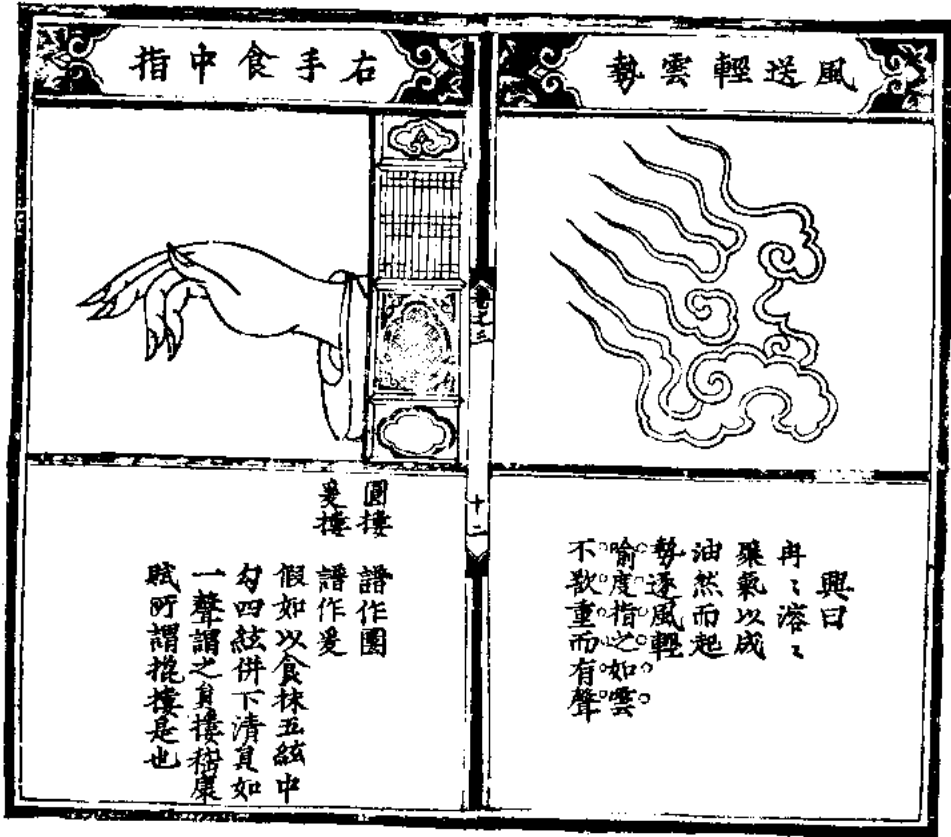 風送輕雲勢
興曰
冉〻溶〻
藂氣以成
油然而起
勢逐風輕
喻度指之如雲
不欲重而有聲
卷之三
十二
右手食中指
圓摟 譜作
摟 譜作
假如以食抹五絃中
勾四絃併下清員如
一聲謂之員摟嵇康
賦所謂摟是也